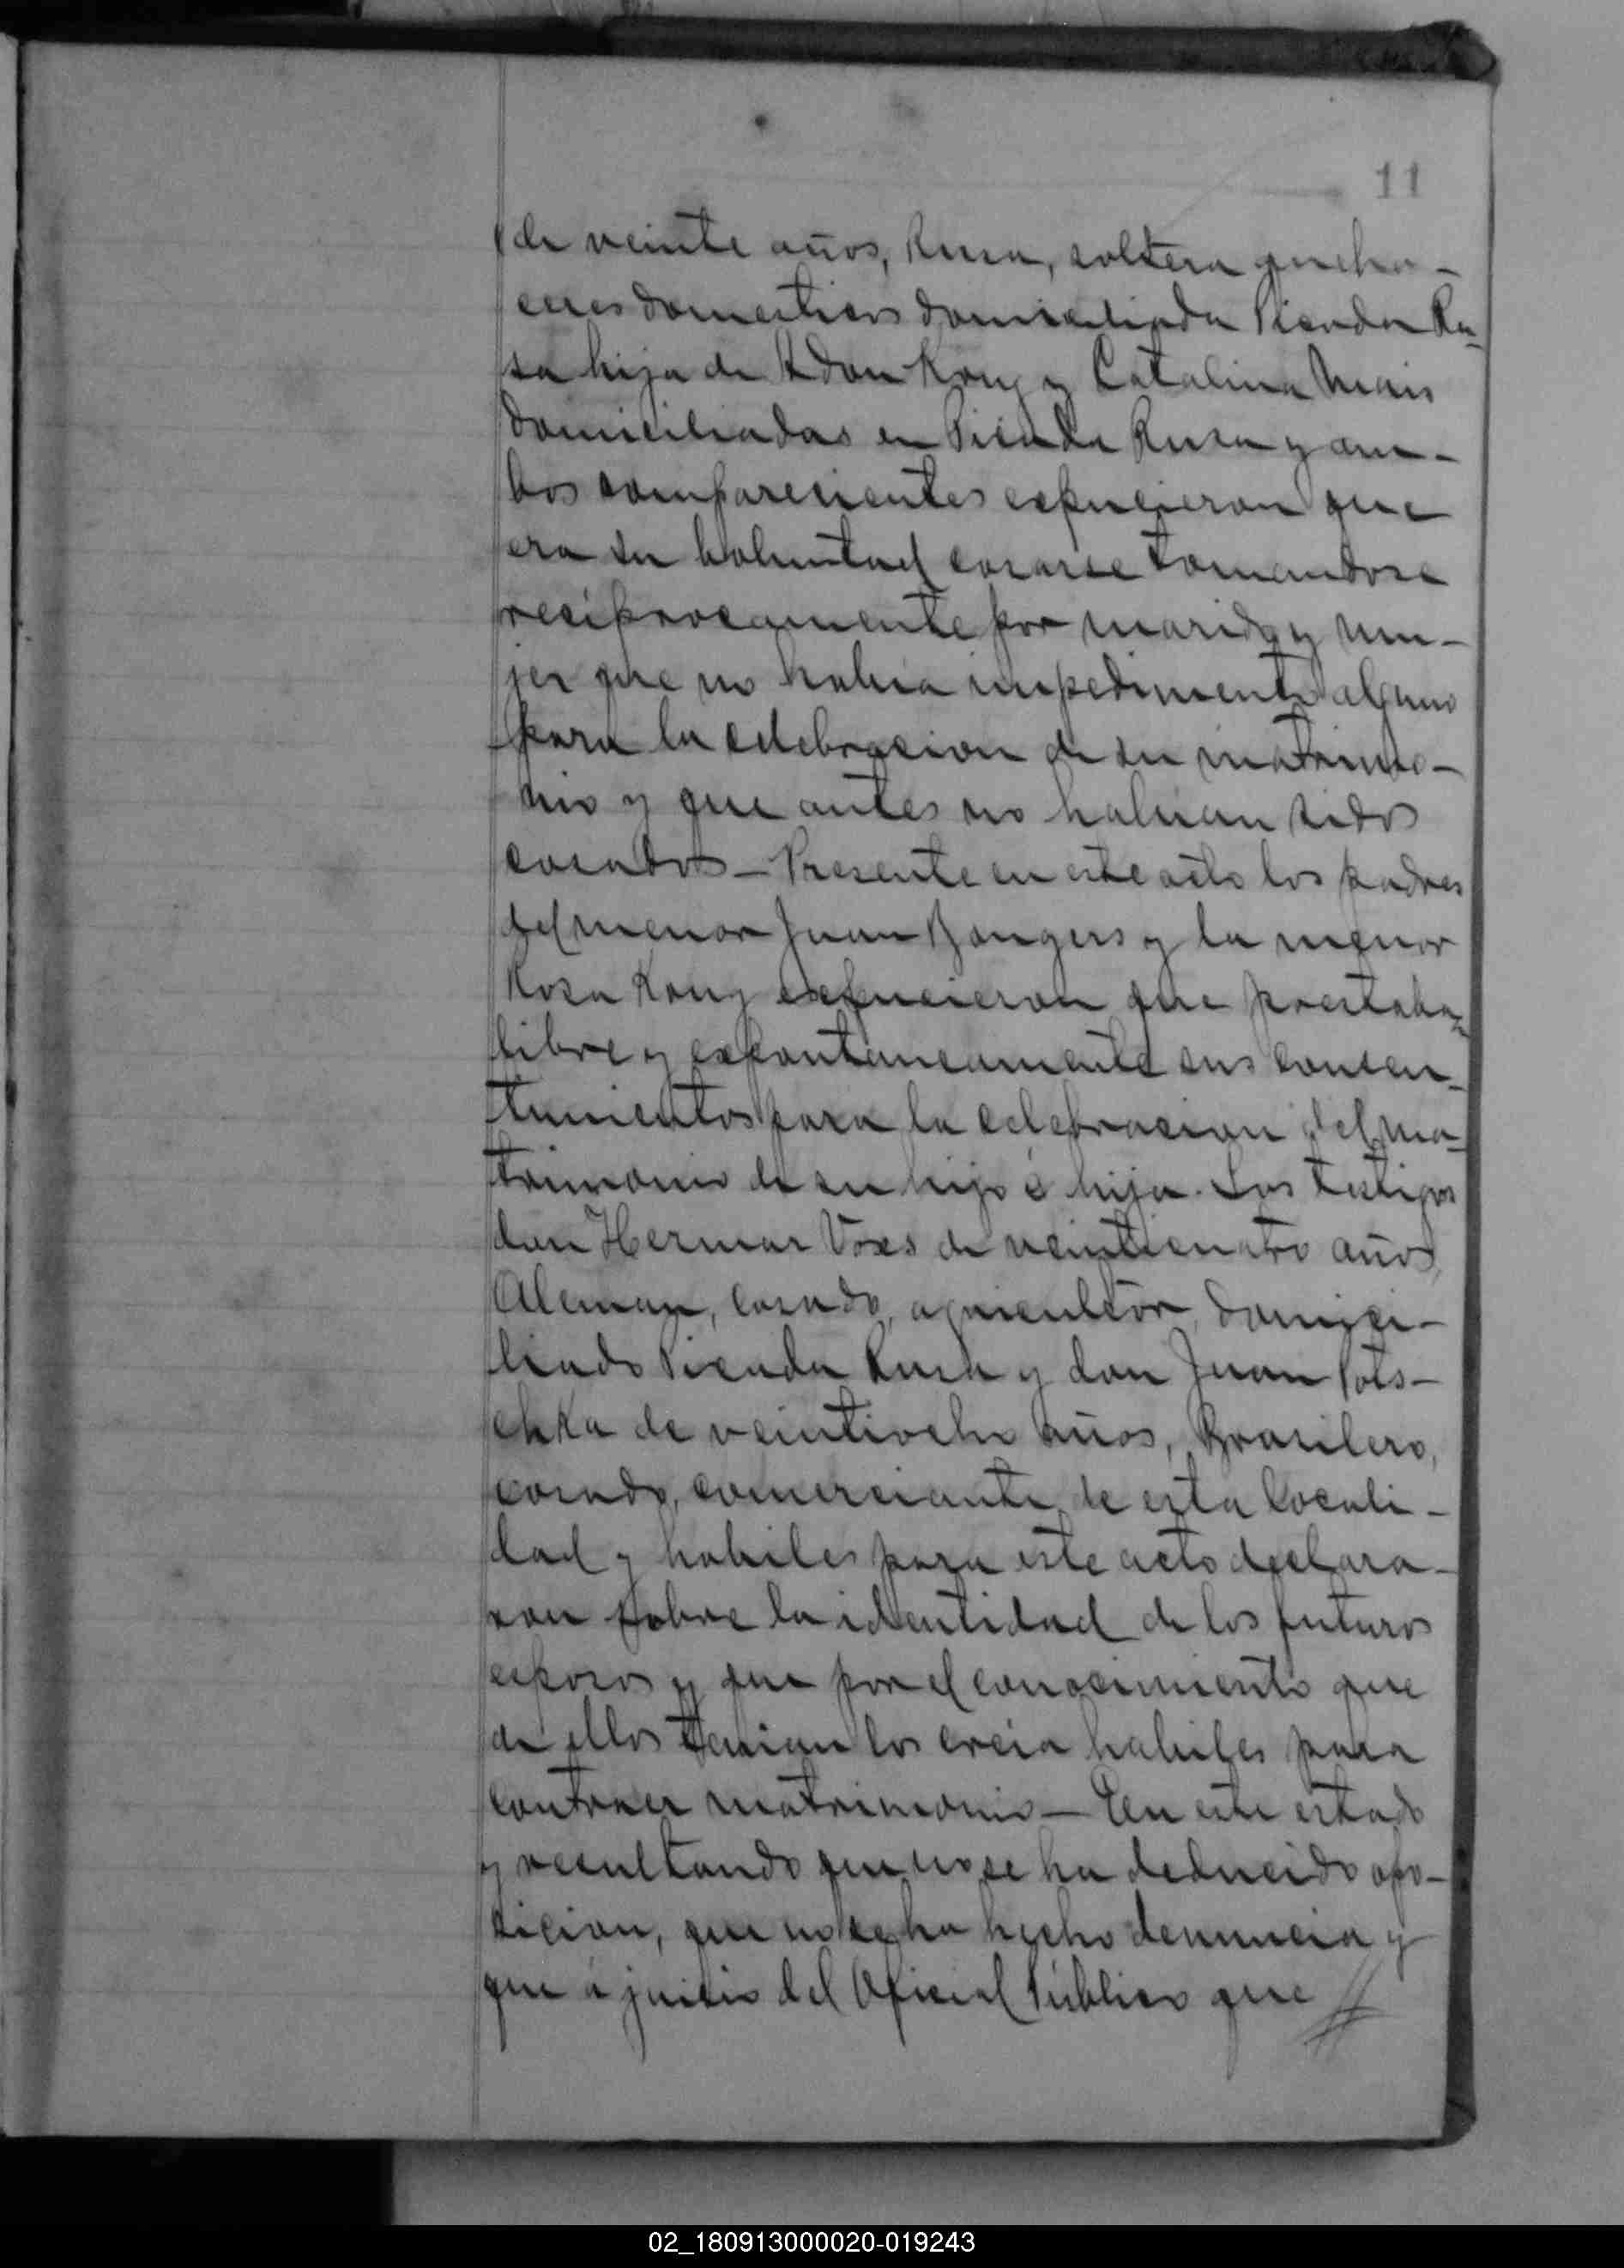 11
de veinte años, Rusa, soltera queha-
ceres domesticos domiciliada Picada Ru-
sa hija de Adan Kony y Catalina Mais
domiciliadas en Picada Rusa y am-
bos comparecientes expucieron que
era su boluntad casarse tomandose
reciprocamente por marido y mu-
jer que no habia impedimento alguno
para la celebracion de su matrimo-
nio y que antes no habian sidos
casados - Presente en este acto los padres
del menor Juan Bongers y la menor
Rosa Kony expucieron que prestaban
libre y expontaneamente sus consen-
timientos para la celebracion del ma-
trimonio de su hijo é hija. Los testigos
don Hermar Voxs de veinticuatro años,
Aleman, casado, agricultor, domici-
liado Picada Rusa y don Juan Pots-
chka de veintiocho años, Brasilero,
casado, comerciante, de esta locali-
dad y habiles para este acto declara-
ron sobre la identidad de los futuros
esposos y que por el conocimiento que
de ellos tenian los creia habiles para
contraer matrimonio - En este estado
y resultando que no se ha deducido opo-
sicion, que no se ha hecho denuncia y
que á juicio del Oficial Público que //
02_180913000020-019243